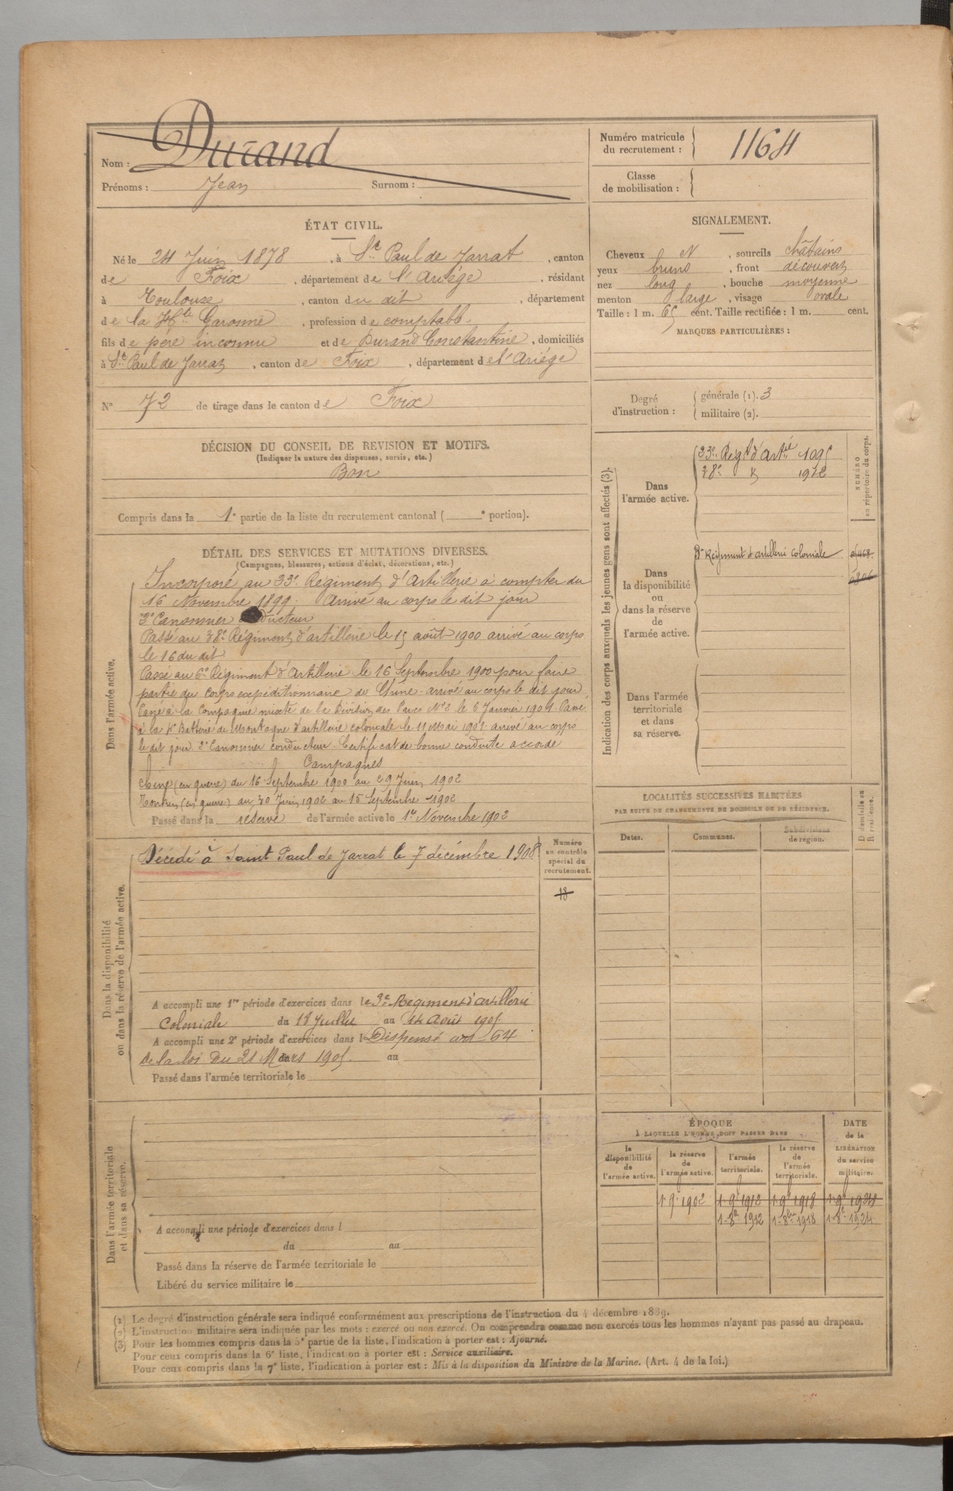 Nom : Durand
Prénoms : Jean Surnom :
Numéro matricule
du recrutement : 1164
Classe
de mobilisation :
ÉTAT CIVIL.
Né le 24 Juin 1878, à St Paul de Jarrat, canton
de Foix, département de l'Ariège, résidant
à Toulouse, canton du dit, département
de la Hte Garonne, profession de comptable
fils de père inconnu et de Durand Constantine, domiciliés
à St Paul de Jarrat, canton de Foix, département de l'Ariège
N° 72 de tirage dans le canton de Foix
SIGNALEMENT.
Cheveux N, sourcils châtains
yeux bruns, front découvert
nez long, bouche moyenne
menton large, visage ovale
Taille : 1 m. 65 cent. Taille rectifiée : 1 m. cent.
MARQUES PARTICULIÈRES :
Degré
d'instruction :
générale (1). 3
militaire (2).
DÉCISION DU CONSEIL DE REVISION ET MOTIFS.
(Indiquer la nature des dispenses, sursis, etc.)
Bon
Compris dans la 1e partie de la liste du recrutement cantonal ( e portion).
Indication des corps auxquels les jeunes gens sont affectés (3).
NUMÉRO
au répertoire du corps.
Dans
l'armée active.
23e Regt d'Artie
38e 1922
Dans
la disponibilité
ou
dans la réserve
de
l'armée active.
Régiment d'artillerie coloniale
Dans l'armée
territoriale
et dans
sa réserve.
DÉTAIL DES SERVICES ET MUTATIONS DIVERSES.
(Campagnes, blessures, actions d'éclat, décorations, etc.)
Dans l'armée active.
Incorporé au 23e Régiment d'Artillerie à compter du
16 Novembre 1899. Arrivé au corps le dit jour
2e Canonnier conducteur
Passé au 38e Régiment d'artillerie le 15 août 1900 arrivé au corps
le 16 du dit
Passé au 6e Régiment d'Artillerie le 16 Septembre 1900 pour faire
partie du Corps expéditionnaire de Chine arrivé au corps le dit jour
Passé à la Compagnie mixte de la Division des Parcs N°2 le 2 Janvier 1901. Passé
à la Batterie de Montagne d'artillerie coloniale le 11 Mai 1901 arrivé au corps
le dit jour 2e Canonnier conducteur Certificat de bonne conduite accordé
Campagnes
Chine (en guerre) du 16 Septembre 1900 au 29 Juin 1902
Tonkin (en guerre) du 30 Juin 1902 au 15 Septembre 1902
Passé dans la réserve de l'armée active le 1er Novembre 1902
Dans la disponibilité
ou dans la réserve de l'armée active.
Décédé à Saint Paul de Jarrat le 7 décembre 1908
Numéro
au contrôle
spécial du
recrutement.
18
A accompli une 1re période d'exercices dans le 3e Régiment d'artillerie
Coloniale du 18 Juillet au 14 Août 1905
A accompli une 2e période d'exercices dans l Dispensé art 64
de la loi du 21 Mars 1905. au
Passé dans l'armée territoriale le
LOCALITÉS SUCCESSIVES HABITÉES
PAR SUITE DE CHANGEMENTS DE DOMICILE OU DE RÉSIDENCE.
Dates. Communes. Subdivisions
de région.
D domicile ou
R résidence.
Dans l'armée territoriale
et dans sa réserve.
A accompli une période d'exercices dans l
du au
Passé dans la réserve de l'armée territoriale le
Libéré du service militaire le
ÉPOQUE
À LAQUELLE L'HOMME DOIT PASSER DANS
DATE
de la
LIBÉRATION
du service
militaire.
la
disponibilité
de
l'armée active.
la réserve
de
l'armée active.
l'armée
territoriale.
la réserve
de
l'armée
territoriale.
1 9e 1902 1 9e 1912 1 9e 1918 1 9e 1924
1 8e 1912 1 8e 1918 1 8e 1924
(1) Le degré d'instruction générale sera indiqué conformément aux prescriptions de l'instruction du 4 décembre 1889.
(2) L'instruction militaire sera indiquée par les mots : exercé ou non exercé. On comprendra comme non exercés tous les hommes n'ayant pas passé au drapeau.
(3) Pour les hommes compris dans la 2e partie de la liste, l'indication à porter est : Ajourné.
Pour ceux compris dans la 6e liste, l'indication à porter est : Service auxiliaire.
Pour ceux compris dans la 7e liste, l'indication à porter est : Mis à la disposition du Ministre de la Marine. (Art. 4 de la loi.)